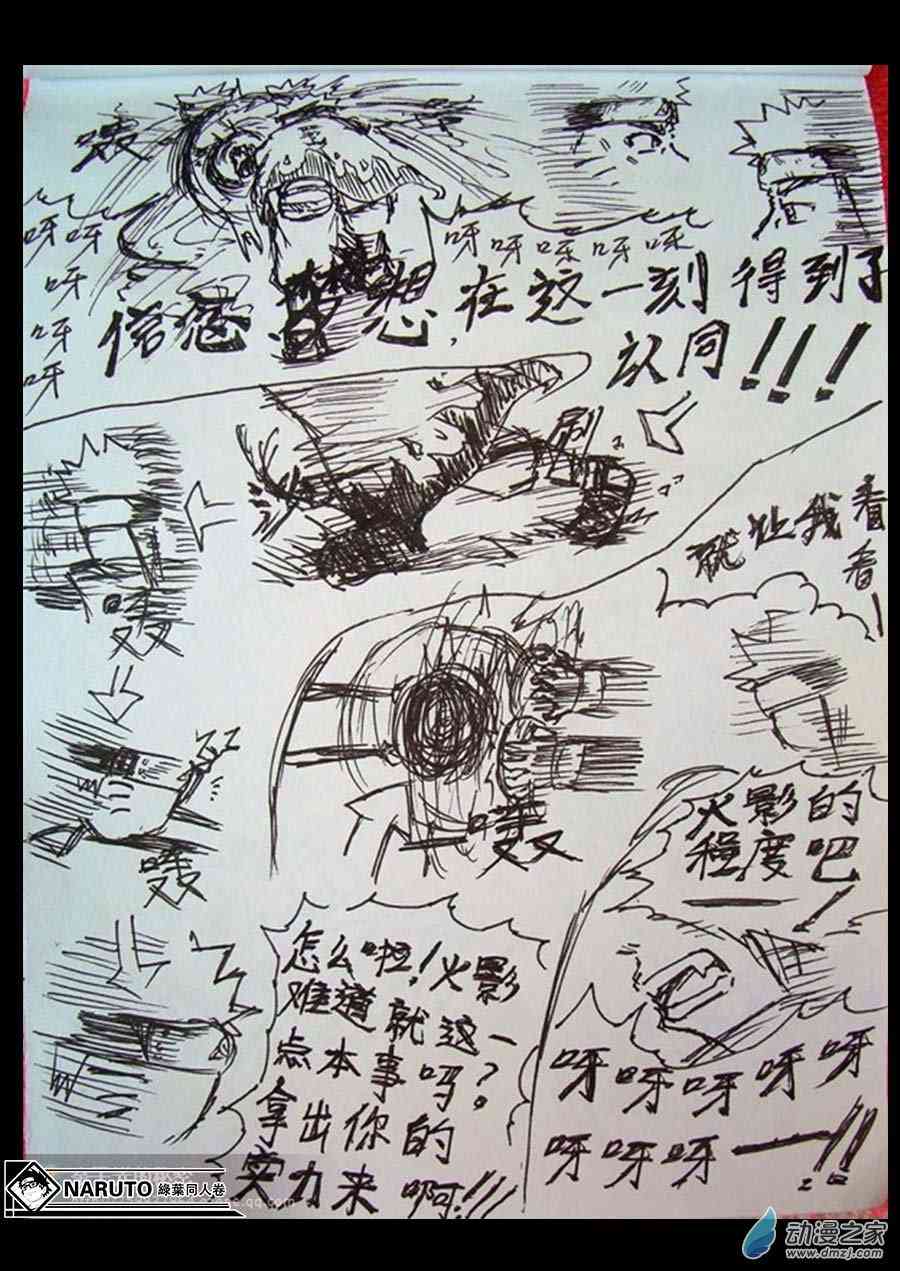 轰
呀呀
呀
呀
呀
呀呀呀呀呀
信念梦想,在这一刻得到了
认同!!!
刷
就让我看
看!
轰
轰
轰
火影的
程度吧
怎么啦!火影
难道就这一
点本事吗?
拿出你的
实力来啊!!
呀呀呀呀呀
呀呀呀一!!
NARUTO 綠葉同人卷
动漫之家
www.dmzj.com